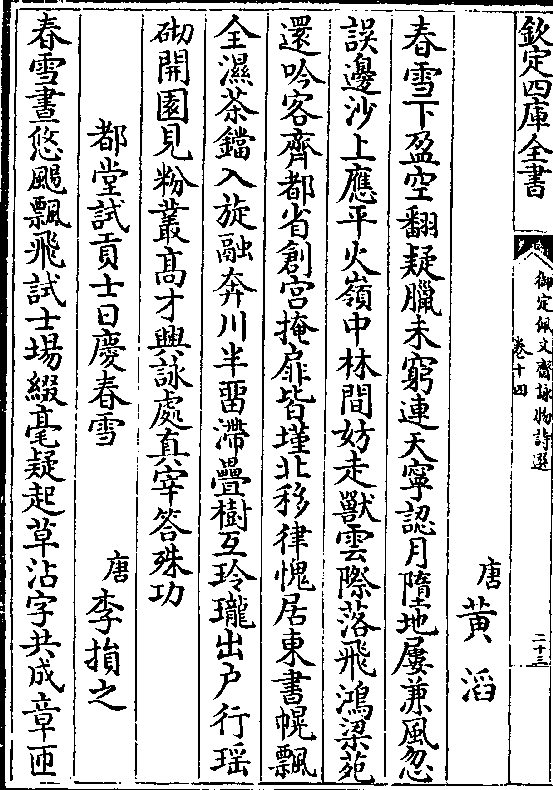 欽定四庫全書
御定佩文齋詠物詩選
卷十四
二十三
唐黃滔
春雪下盈空翻疑臘未窮連天寧認月隋地屢兼風忽
誤邊沙上應平火嶺中林間妨走獸雲際落飛鴻梁苑
還吟客齊都省創宮掩扉皆墐北移律愧居東書幌飄
全濕茶鐺入旋融奔川半留滯疊樹互玲瓏出戶行瑶
砌開園見粉叢高才興詠處真宰答殊功
都堂試貢士日慶春雪
唐李損之
春雪晝悠颺飄飛試士場綴毫疑起草沾字共成章匝